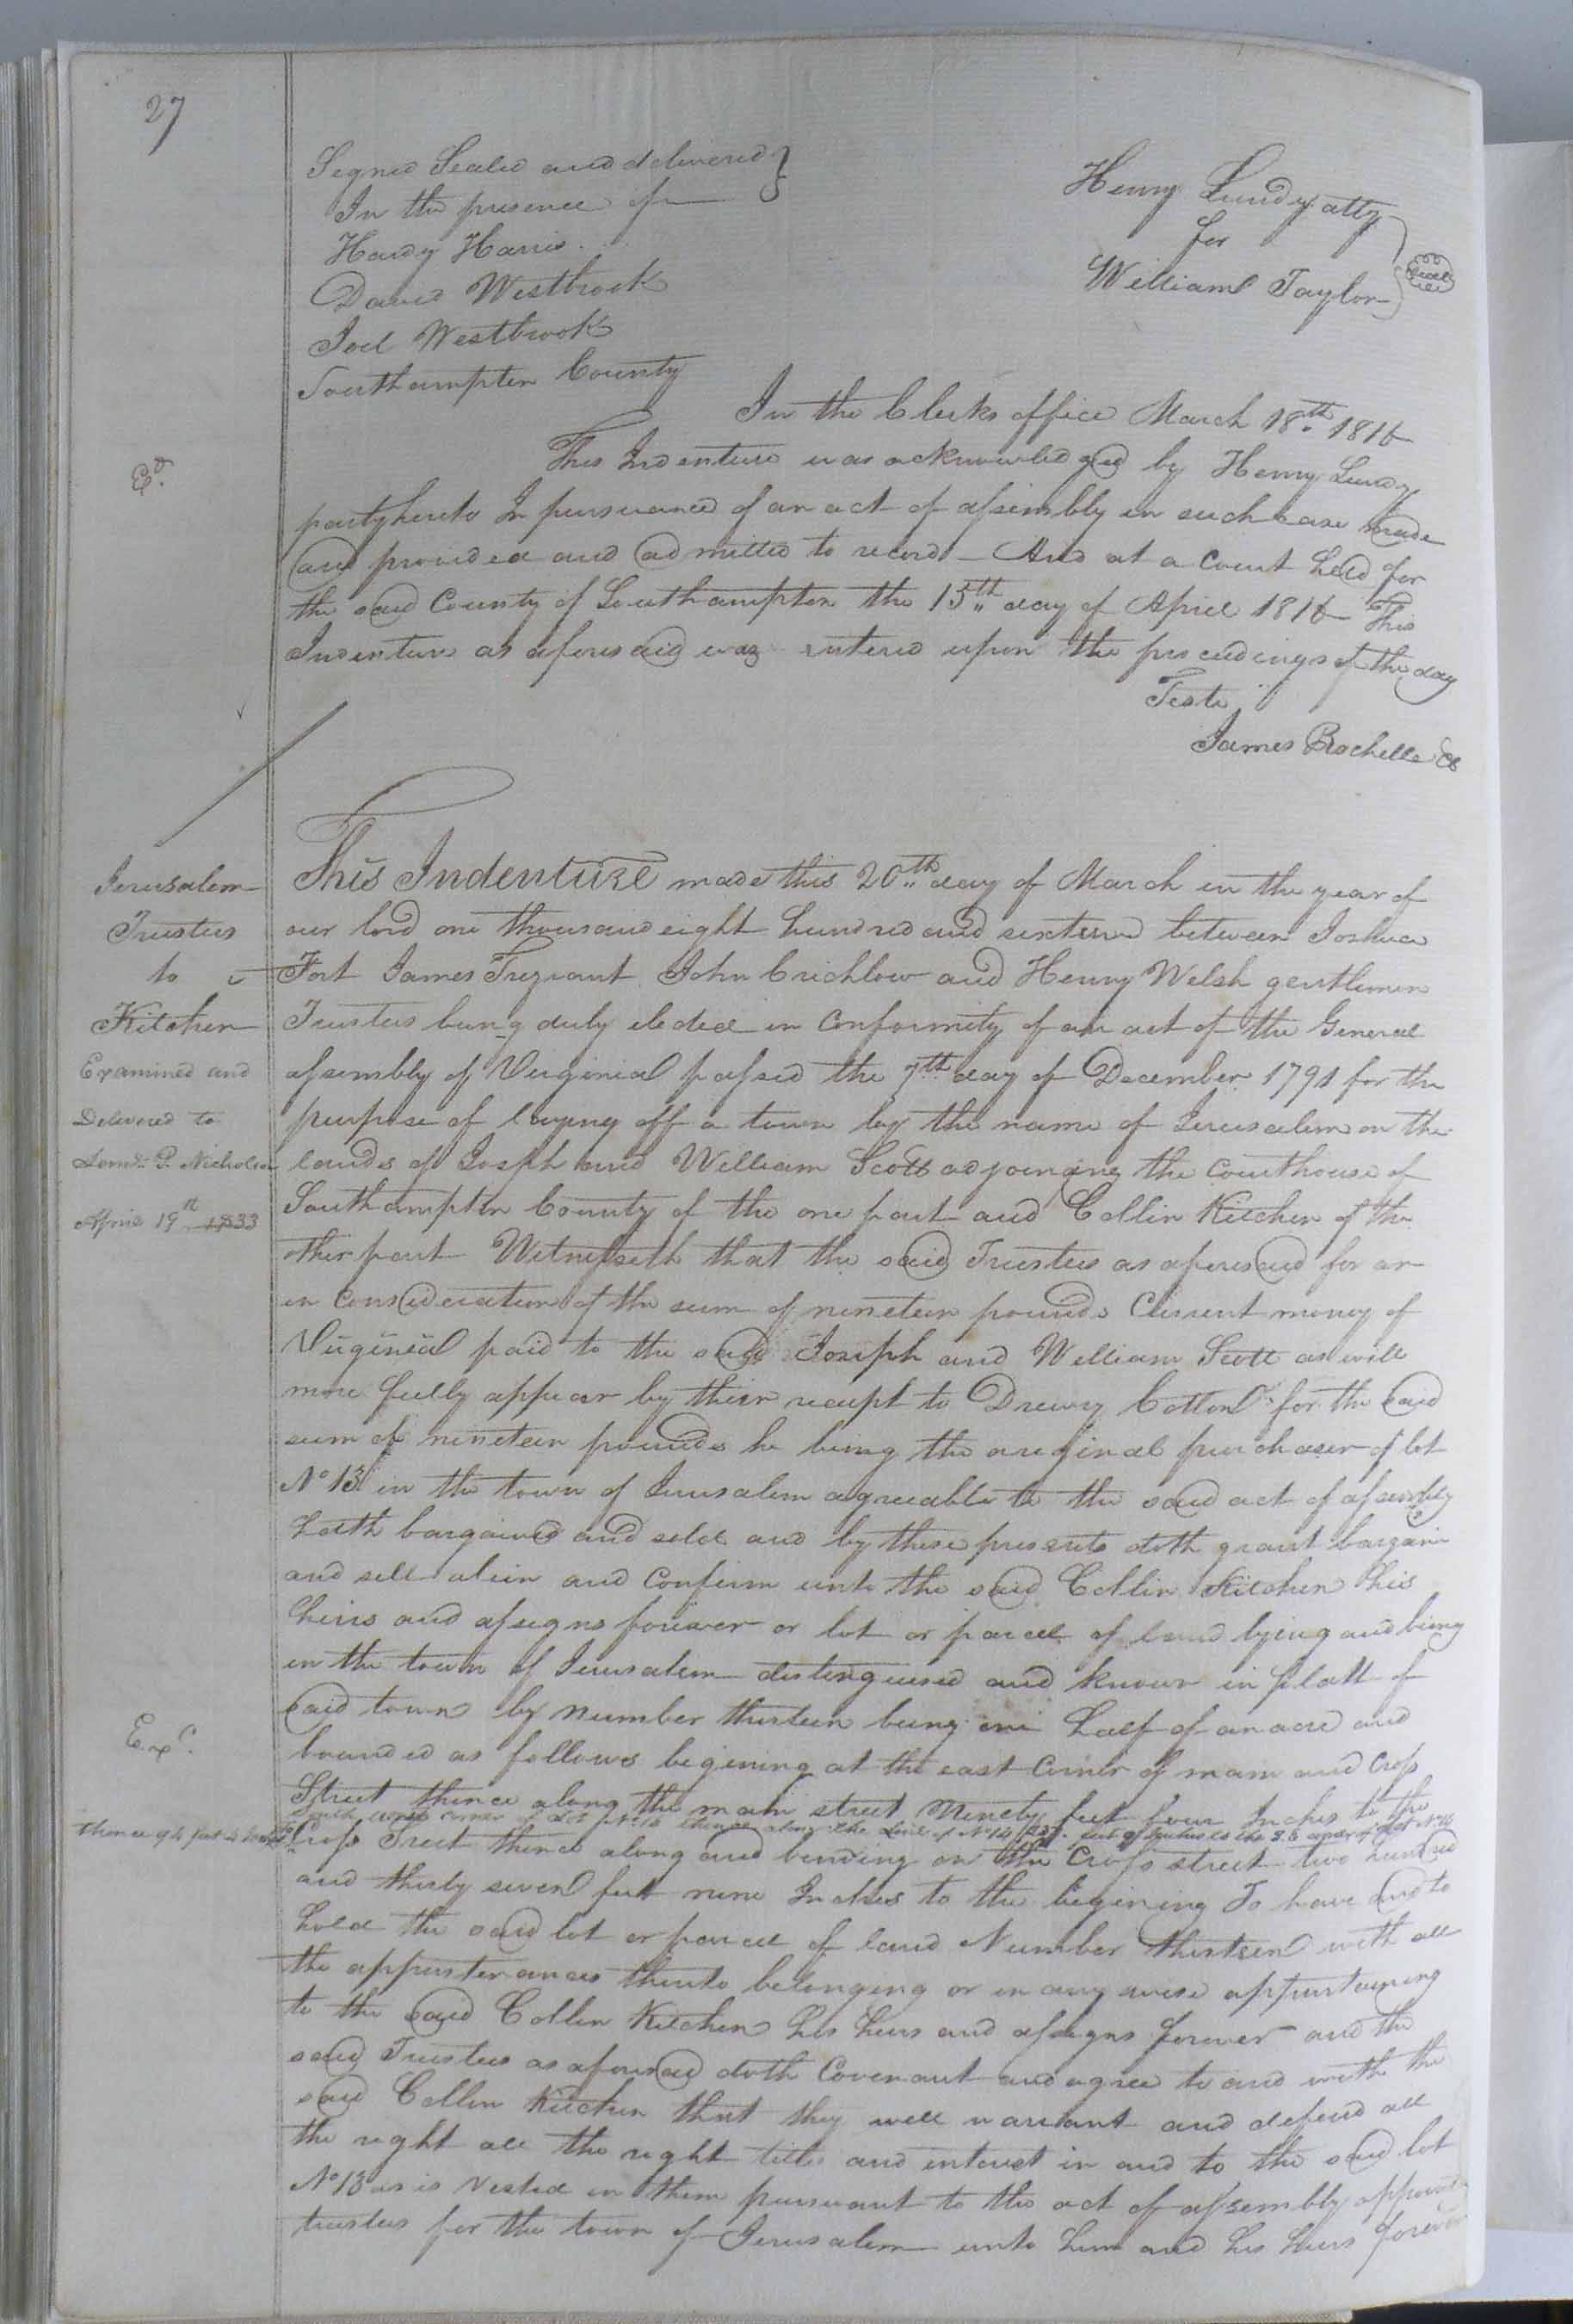 27
Signed Sealed and delivered }
In the presence of
Hardy Harris
David Westbrook
Joel Westbrook
Henry Lundy atty
for
William Taylor
Seal
Southampton County
In the Clerks office March 18th 1816
This Indenture was acknowledged by Henry Lundy
party hereto In pursuance of an act of assembly in such case made
and provided and admitted to record - And at a Court held for
the said County of Southampton the 15th day of April 1816 This
Indenture as aforesaid was entered upon the proceedings of the day
Teste
James Rochelle
Jerusalem
Trustees
to
Kitchen
Examined and
Delivered to
P. Nicholson
April 19th 1833
This Indenture made this 20th day of March in the year of
our lord one thousand eight hundred and sixteen between Joshua
Fort James Trezvant John Crichlow and Henry Welsh gentlemen
Trustees being duly elected in Conformity of an act of the General
assembly of Virginia passed the 7th day of December 1791 for the
purpose of laying off a town by the name of Jerusalem on the
lands of Joseph and William Scott adjoining the Courthouse of
Southampton County of the one part and Collin Kitchen of the
other part Witnesseth that the said Trustees as aforesaid for an
in Consideration of the sum of nineteen pounds Current money of
Virginia paid to the said Joseph and William Scott as will
more fully appear by their receipt to Drewry Cotton for the said
sum of nineteen pounds he being the original purchaser of lot
No 13 in the town of Jerusalem agreeable to the said act of assembly
hath bargained and sold and by these presents doth grant bargain
and sell alien and Confirm unto the said Collin Kitchen his
heirs and assigns forever or lot or parcel of land lying and being
in the town of Jerusalem distinguised and known in platt of
said town by number thirteen being one half of an acre and
bounded as follows begining at the east Corner of main and Cross
Street thence along the main street Ninety feet four Inches to the
south west corner of lot No 14 thence along the line of No 14 237 feet 9 Inches to the S.E corner of lot No 14
thence 94 feet 4 Inches to
Cross Treet thence along and bending on the Cross street two hundred
and thirty seven feet nine Inches to the begining To have and to
hold the said lot or parcel of land Number thirteen with all
the appurtenances thereto belonging or in any wise appurtaining
to the said Collin Kitchen his heirs and assigns forever and the
said Trustees as aforesaid doth Covenant and agree to and with the
said Collin Kitchen that they will warrant and defend all
the right all the right title and interest in and to the said lot
No 13 as is Vested in them pursuant to the act of assembly
trustees for the town of Jerusalem unto him and his heirs forever